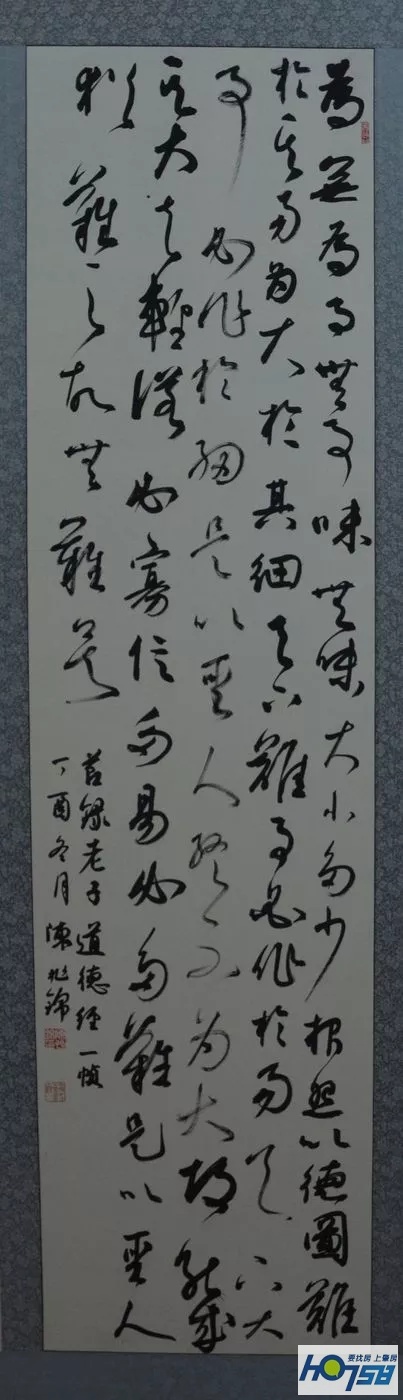 為無為事無事味無味大小多少報怨以德圖難
於其易為大於其細天下難事必作於易天下大
事必作於細是以聖人終不為大故能成
其大夫輕諾必寡信多易必多難是以聖人
猶難之故無難矣
節錄老子道德經一幀
丁酉冬月陳兆錦
要找房 上肇房
HO758